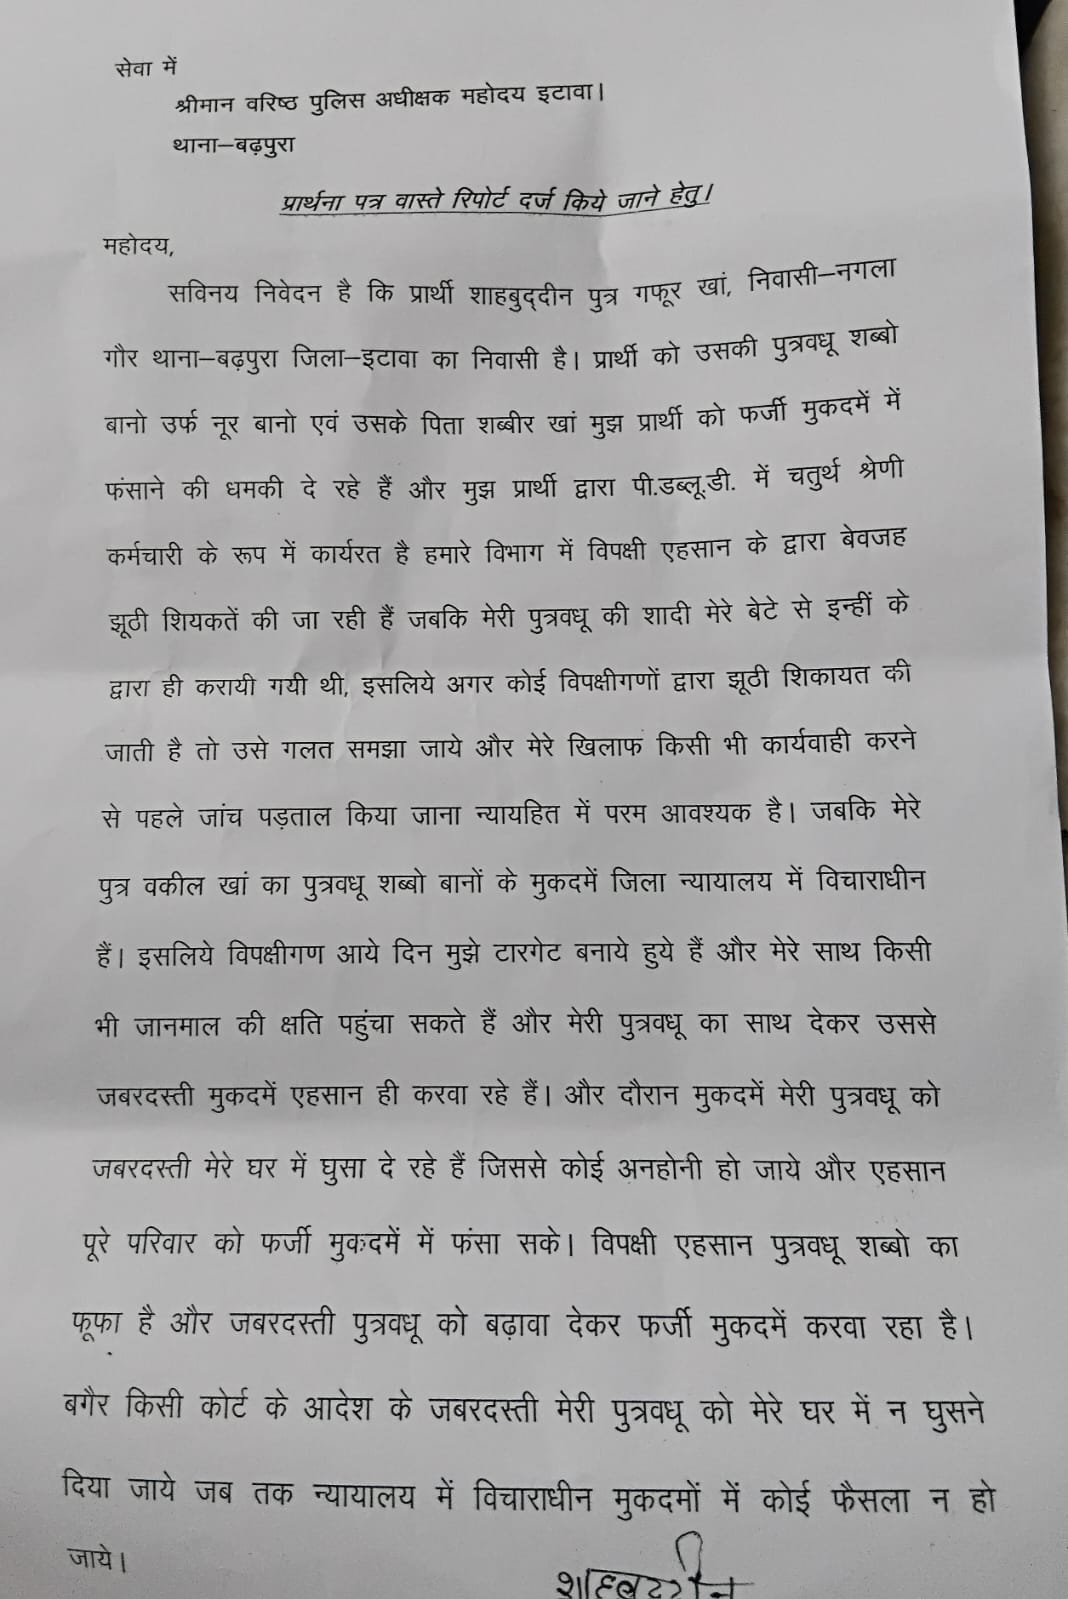 सेवा में
श्रीमान वरिष्ठ पुलिस अधीक्षक महोदय इटावा।
थाना–बढ़पुरा
प्रार्थना पत्र वास्ते रिपोर्ट दर्ज किये जाने हेतु।
महोदय,
सविनय निवेदन है कि प्रार्थी शाहबुद्दीन पुत्र गफूर खां, निवासी–नगला
गौर थाना–बढ़पुरा जिला–इटावा का निवासी है। प्रार्थी को उसकी पुत्रवधू शब्बो
बानो उर्फ नूर बानो एवं उसके पिता शब्बीर खां मुझ प्रार्थी को फर्जी मुकदमें में
फंसाने की धमकी दे रहे हैं और मुझ प्रार्थी द्वारा पी.डब्लू.डी. में चतुर्थ श्रेणी
कर्मचारी के रूप में कार्यरत है हमारे विभाग में विपक्षी एहसान के द्वारा बेवजह
झूठी शियकतें की जा रही हैं जबकि मेरी पुत्रवधू की शादी मेरे बेटे से इन्हीं के
द्वारा ही करायी गयी थी, इसलिये अगर कोई विपक्षीगणों द्वारा झूठी शिकायत की
जाती है तो उसे गलत समझा जाये और मेरे खिलाफ किसी भी कार्यवाही करने
से पहले जांच पड़ताल किया जाना न्यायहित में परम आवश्यक है। जबकि मेरे
पुत्र वकील खां का पुत्रवधू शब्बो बानों के मुकदमें जिला न्यायालय में विचाराधीन
हैं। इसलिये विपक्षीगण आये दिन मुझे टारगेट बनाये हुये हैं और मेरे साथ किसी
भी जानमाल की क्षति पहुंचा सकते हैं और मेरी पुत्रवधू का साथ देकर उससे
जबरदस्ती मुकदमें एहसान ही करवा रहे हैं। और दौरान मुकदमें मेरी पुत्रवधू को
जबरदस्ती मेरे घर में घुसा दे रहे हैं जिससे कोई अनहोनी हो जाये और एहसान
पूरे परिवार को फर्जी मुकदमें में फंसा सके। विपक्षी एहसान पुत्रवधू शब्बो का
फूफा है और जबरदस्ती पुत्रवधू को बढ़ावा देकर फर्जी मुकदमें करवा रहा है।
बगैर किसी कोर्ट के आदेश के जबरदस्ती मेरी पुत्रवधू को मेरे घर में न घुसने
दिया जाये जब तक न्यायालय में विचाराधीन मुकदमों में कोई फैसला न हो
जाये।